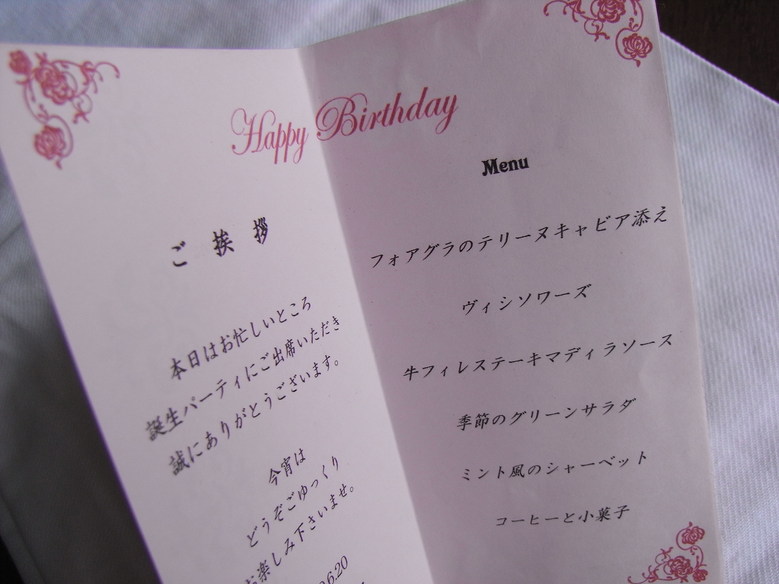 Happy Birthday
ご挨拶
本日はお忙しいところ
誕生パーティにご出席いただき
誠にありがとうございます。
今宵は
どうぞごゆっくり
お楽しみ下さいませ。
6.20
Menu
フォアグラのテリーヌキャビア添え
ヴィシソワーズ
牛フィレステーキマディラソース
季節のグリーンサラダ
ミント風のシャーベット
コーヒーと小菓子